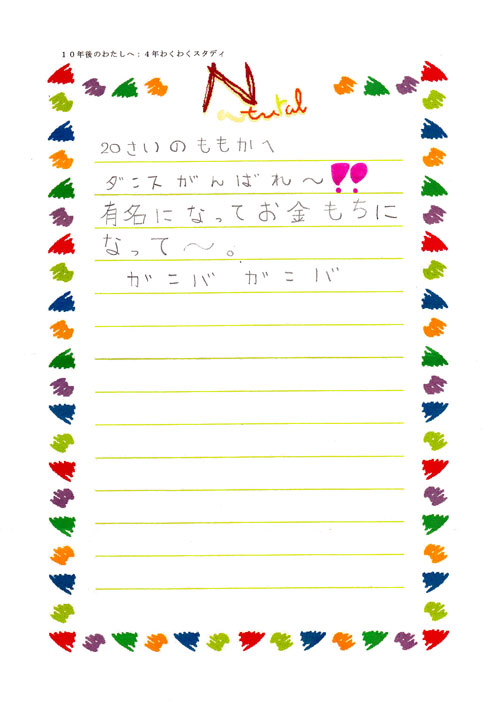 10年後のわたしへ：4年わくわくスタディ
Natural
20さいのももかへ
ダニスがんばれ〜!!
有名になってお金もちに
なって〜。
ガニバ ガニバ